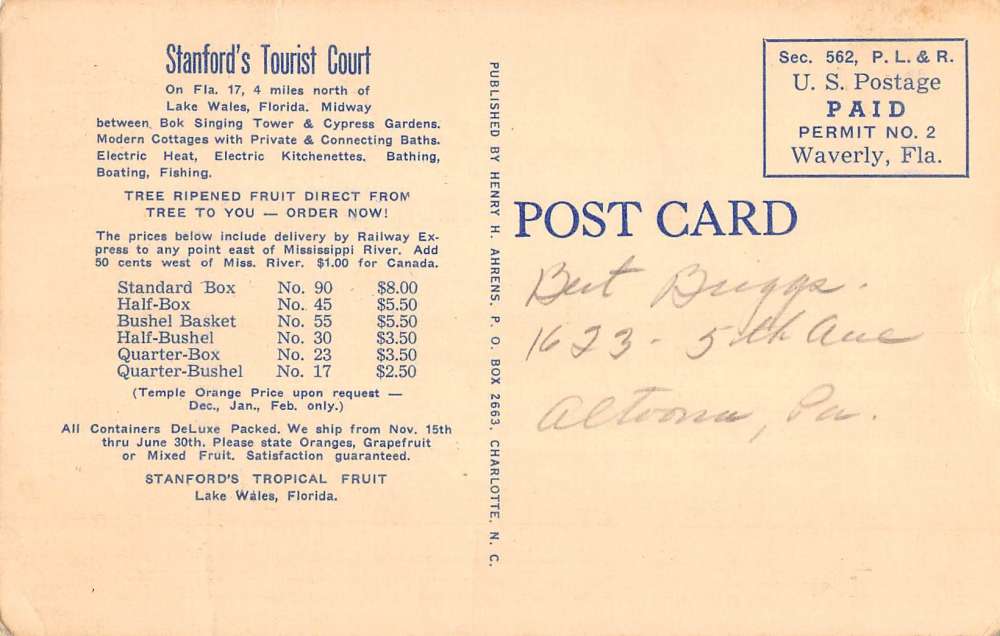 Stanford's Tourist Court
On Fla. 17, 4 miles north of
Lake Wales, Florida. Midway
between Bok Singing Tower & Cypress Gardens.
Modern Cottages with Private & Connecting Baths.
Electric Heat, Electric Kitchenettes. Bathing,
Boating, Fishing.
TREE RIPENED FRUIT DIRECT FROM
TREE TO YOU — ORDER NOW!
The prices below include delivery by Railway Ex-
press to any point east of Mississippi River. Add
50 cents west of Miss. River. $1.00 for Canada.
Standard Box No. 90 $8.00
Half-Box No. 45 $5.50
Bushel Basket No. 55 $5.50
Half-Bushel No. 30 $3.50
Quarter-Box No. 23 $3.50
Quarter-Bushel No. 17 $2.50
(Temple Orange Price upon request —
Dec., Jan., Feb. only.)
All Containers DeLuxe Packed. We ship from Nov. 15th
thru June 30th. Please state Oranges, Grapefruit
or Mixed Fruit. Satisfaction guaranteed.
STANFORD'S TROPICAL FRUIT
Lake Wales, Florida.
PUBLISHED BY HENRY H. AHRENS, P. O. BOX 2663, CHARLOTTE, N. C.
Sec. 562, P. L. & R.
U. S. Postage
PAID
PERMIT NO. 2
Waverly, Fla.
POST CARD
Bert Briggs.
1623 - 5th Ave
Altoona, Pa.